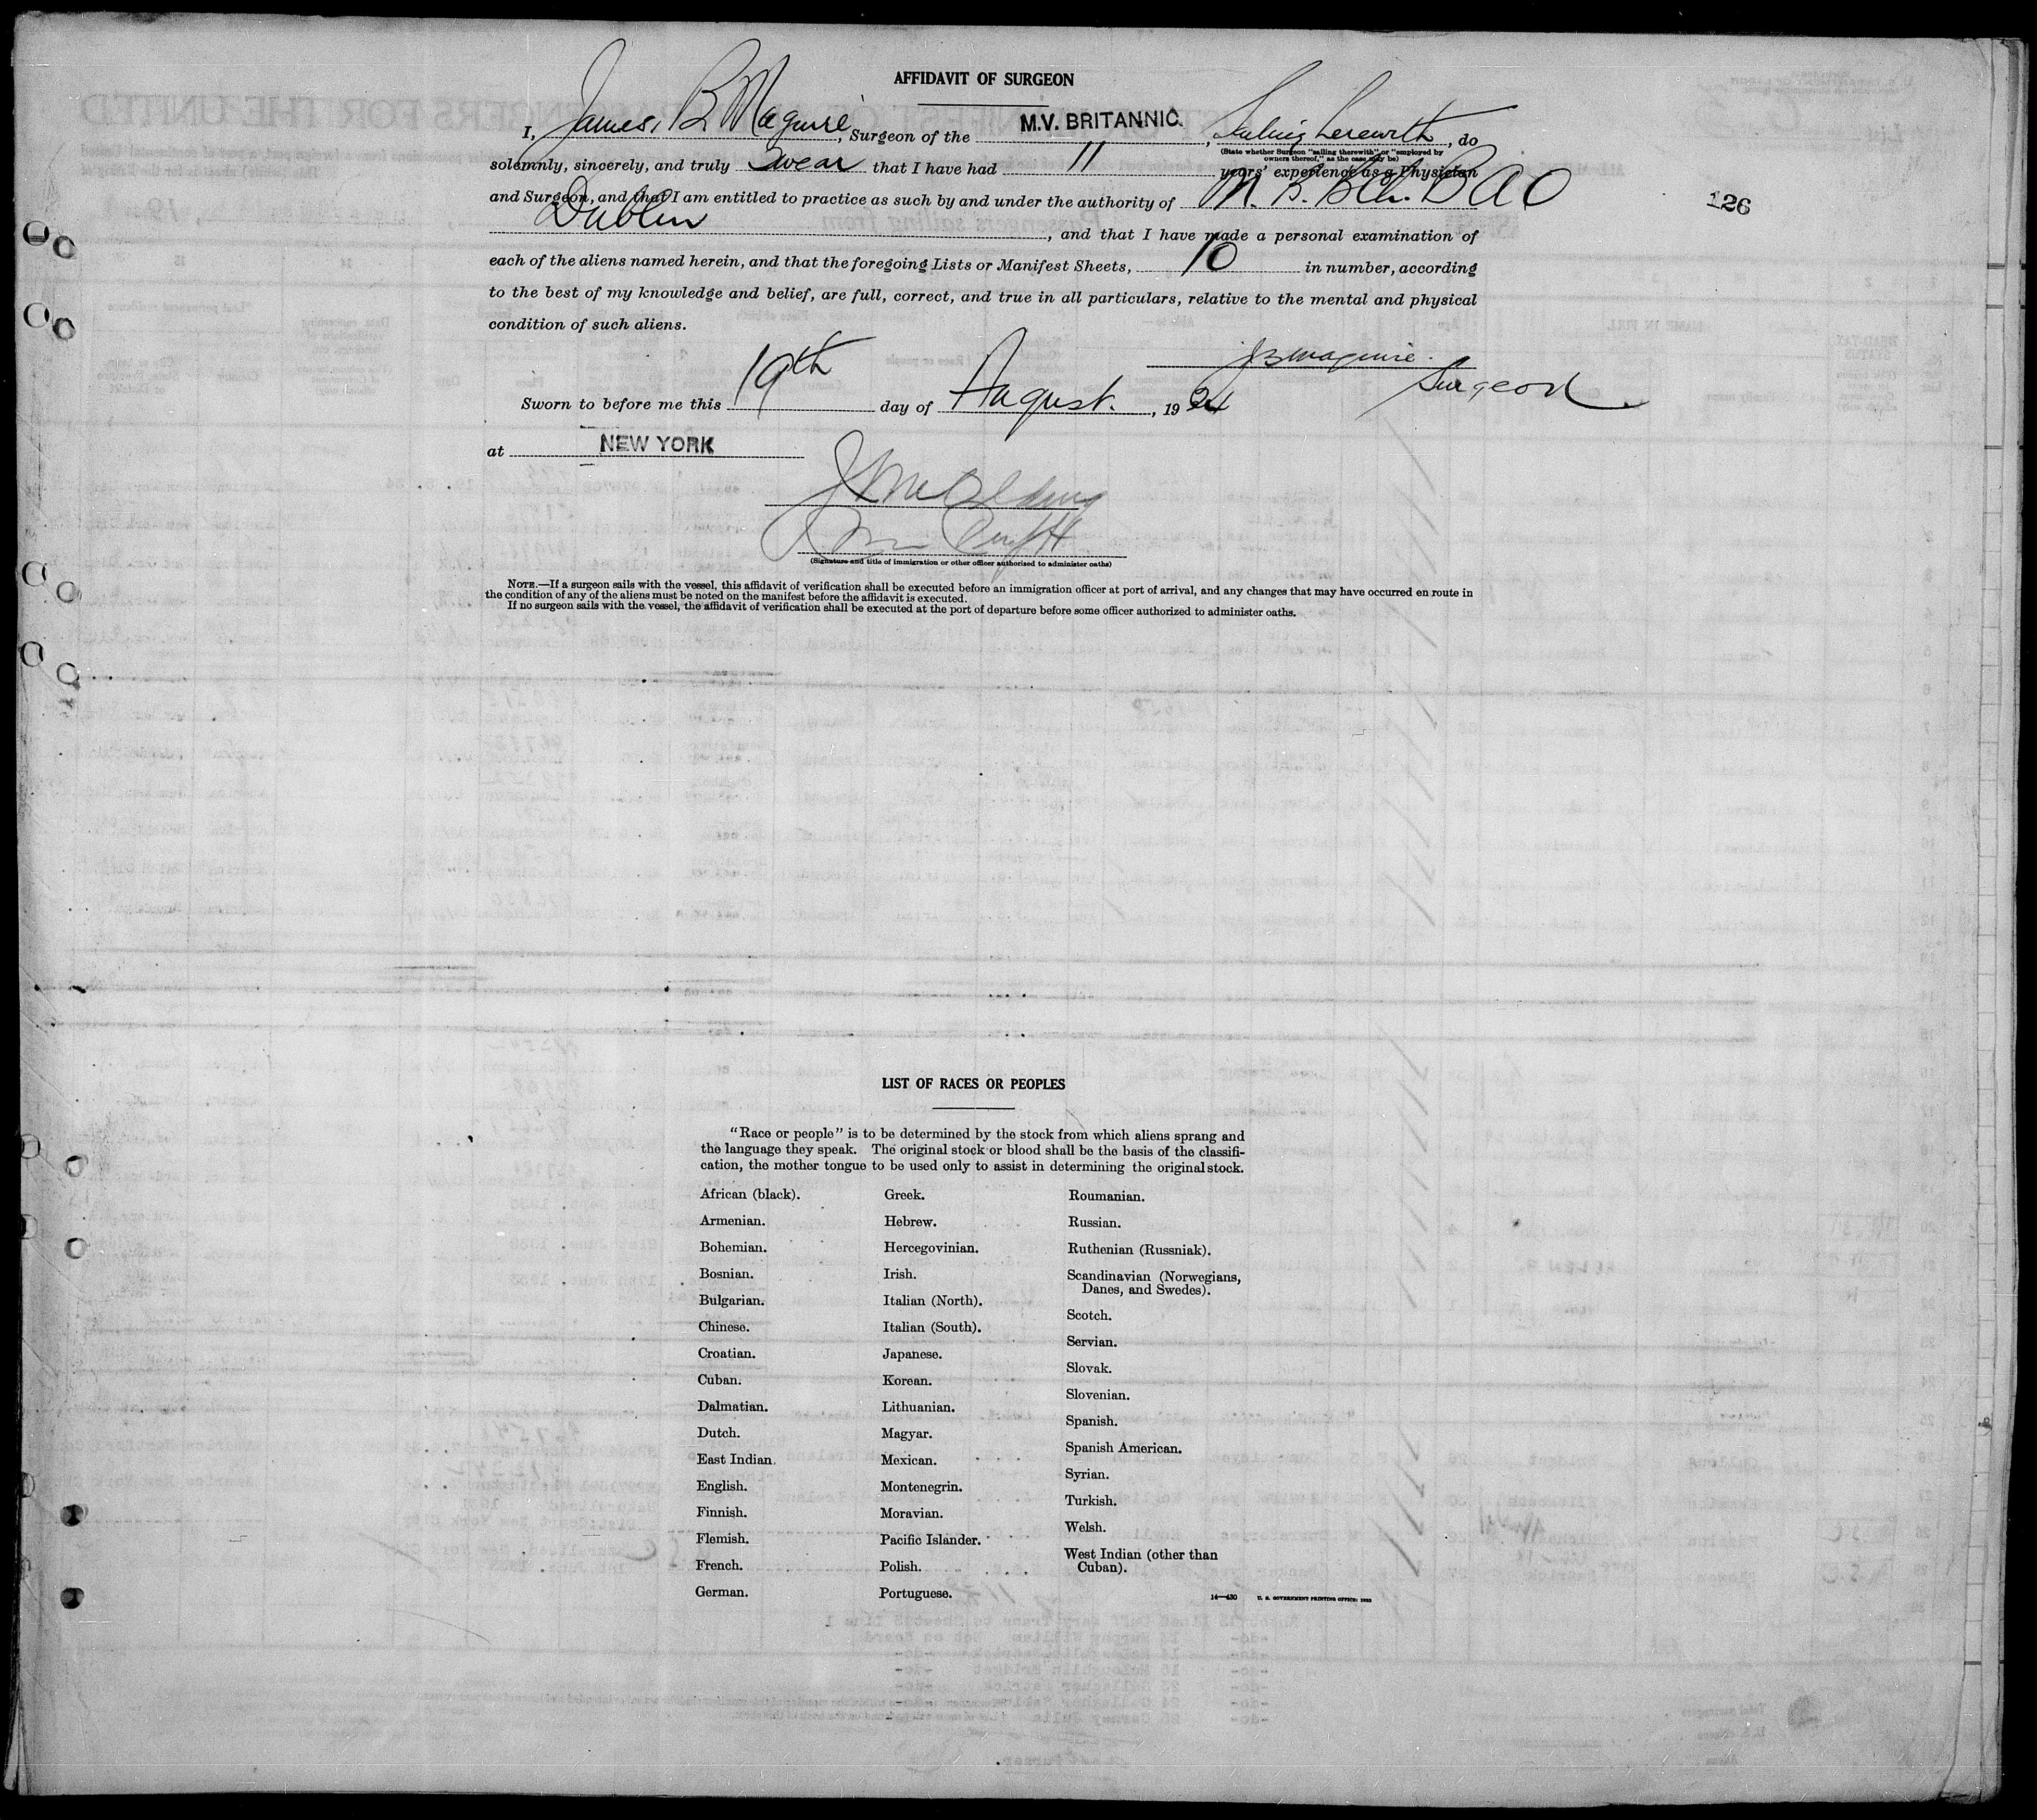 AFFIDAVIT OF SURGEON
I, James, B Maguire, Surgeon of the M.V. BRITANNIC, Sailing herewith, do
(State whether Surgeon "sailing therewith" or "employed by
owners thereof," as the case may be)
solemnly, sincerely, and truly swear that I have had 11 years' experience as a Physician
and Surgeon, and that I am entitled to practice as such by and under the authority of M. B. BCh. B A O
Dublin, and that I have made a personal examination of
126
each of the aliens named herein, and that the foregoing Lists or Manifest Sheets, 10 in number, according
to the best of my knowledge and belief, are full, correct, and true in all particulars, relative to the mental and physical
condition of such aliens.
JBMaguire.
Surgeon.
Sworn to before me this 19th day of August., 1934
at NEW YORK
(Signature and title of immigration or other officer authorized to administer oaths)
NOTE.—If a surgeon sails with the vessel, this affidavit of verification shall be executed before an immigration officer at port of arrival, and any changes that may have occurred en route in
the condition of any of the aliens must be noted on the manifest before the affidavit is executed.
If no surgeon sails with the vessel, the affidavit of verification shall be executed at the port of departure before some officer authorized to administer oaths.
LIST OF RACES OR PEOPLES
"Race or people" is to be determined by the stock from which aliens sprang and
the language they speak. The original stock or blood shall be the basis of the classifi-
cation, the mother tongue to be used only to assist in determining the original stock.
African (black).
Armenian.
Bohemian.
Bosnian.
Bulgarian.
Chinese.
Croatian.
Cuban.
Dalmatian.
Dutch.
East Indian.
English.
Finnish.
Flemish.
French.
German.
Greek.
Hebrew.
Hercegovinian.
Irish.
Italian (North).
Italian (South).
Japanese.
Korean.
Lithuanian.
Magyar.
Mexican.
Montenegrin.
Moravian.
Pacific Islander.
Polish.
Portuguese.
Roumanian.
Russian.
Ruthenian (Russniak).
Scandinavian (Norwegians,
Danes, and Swedes).
Scotch.
Servian.
Slovak.
Slovenian.
Spanish.
Spanish American.
Syrian.
Turkish.
Welsh.
West Indian (other than
Cuban).
14—430 U. S. GOVERNMENT PRINTING OFFICE: 1933